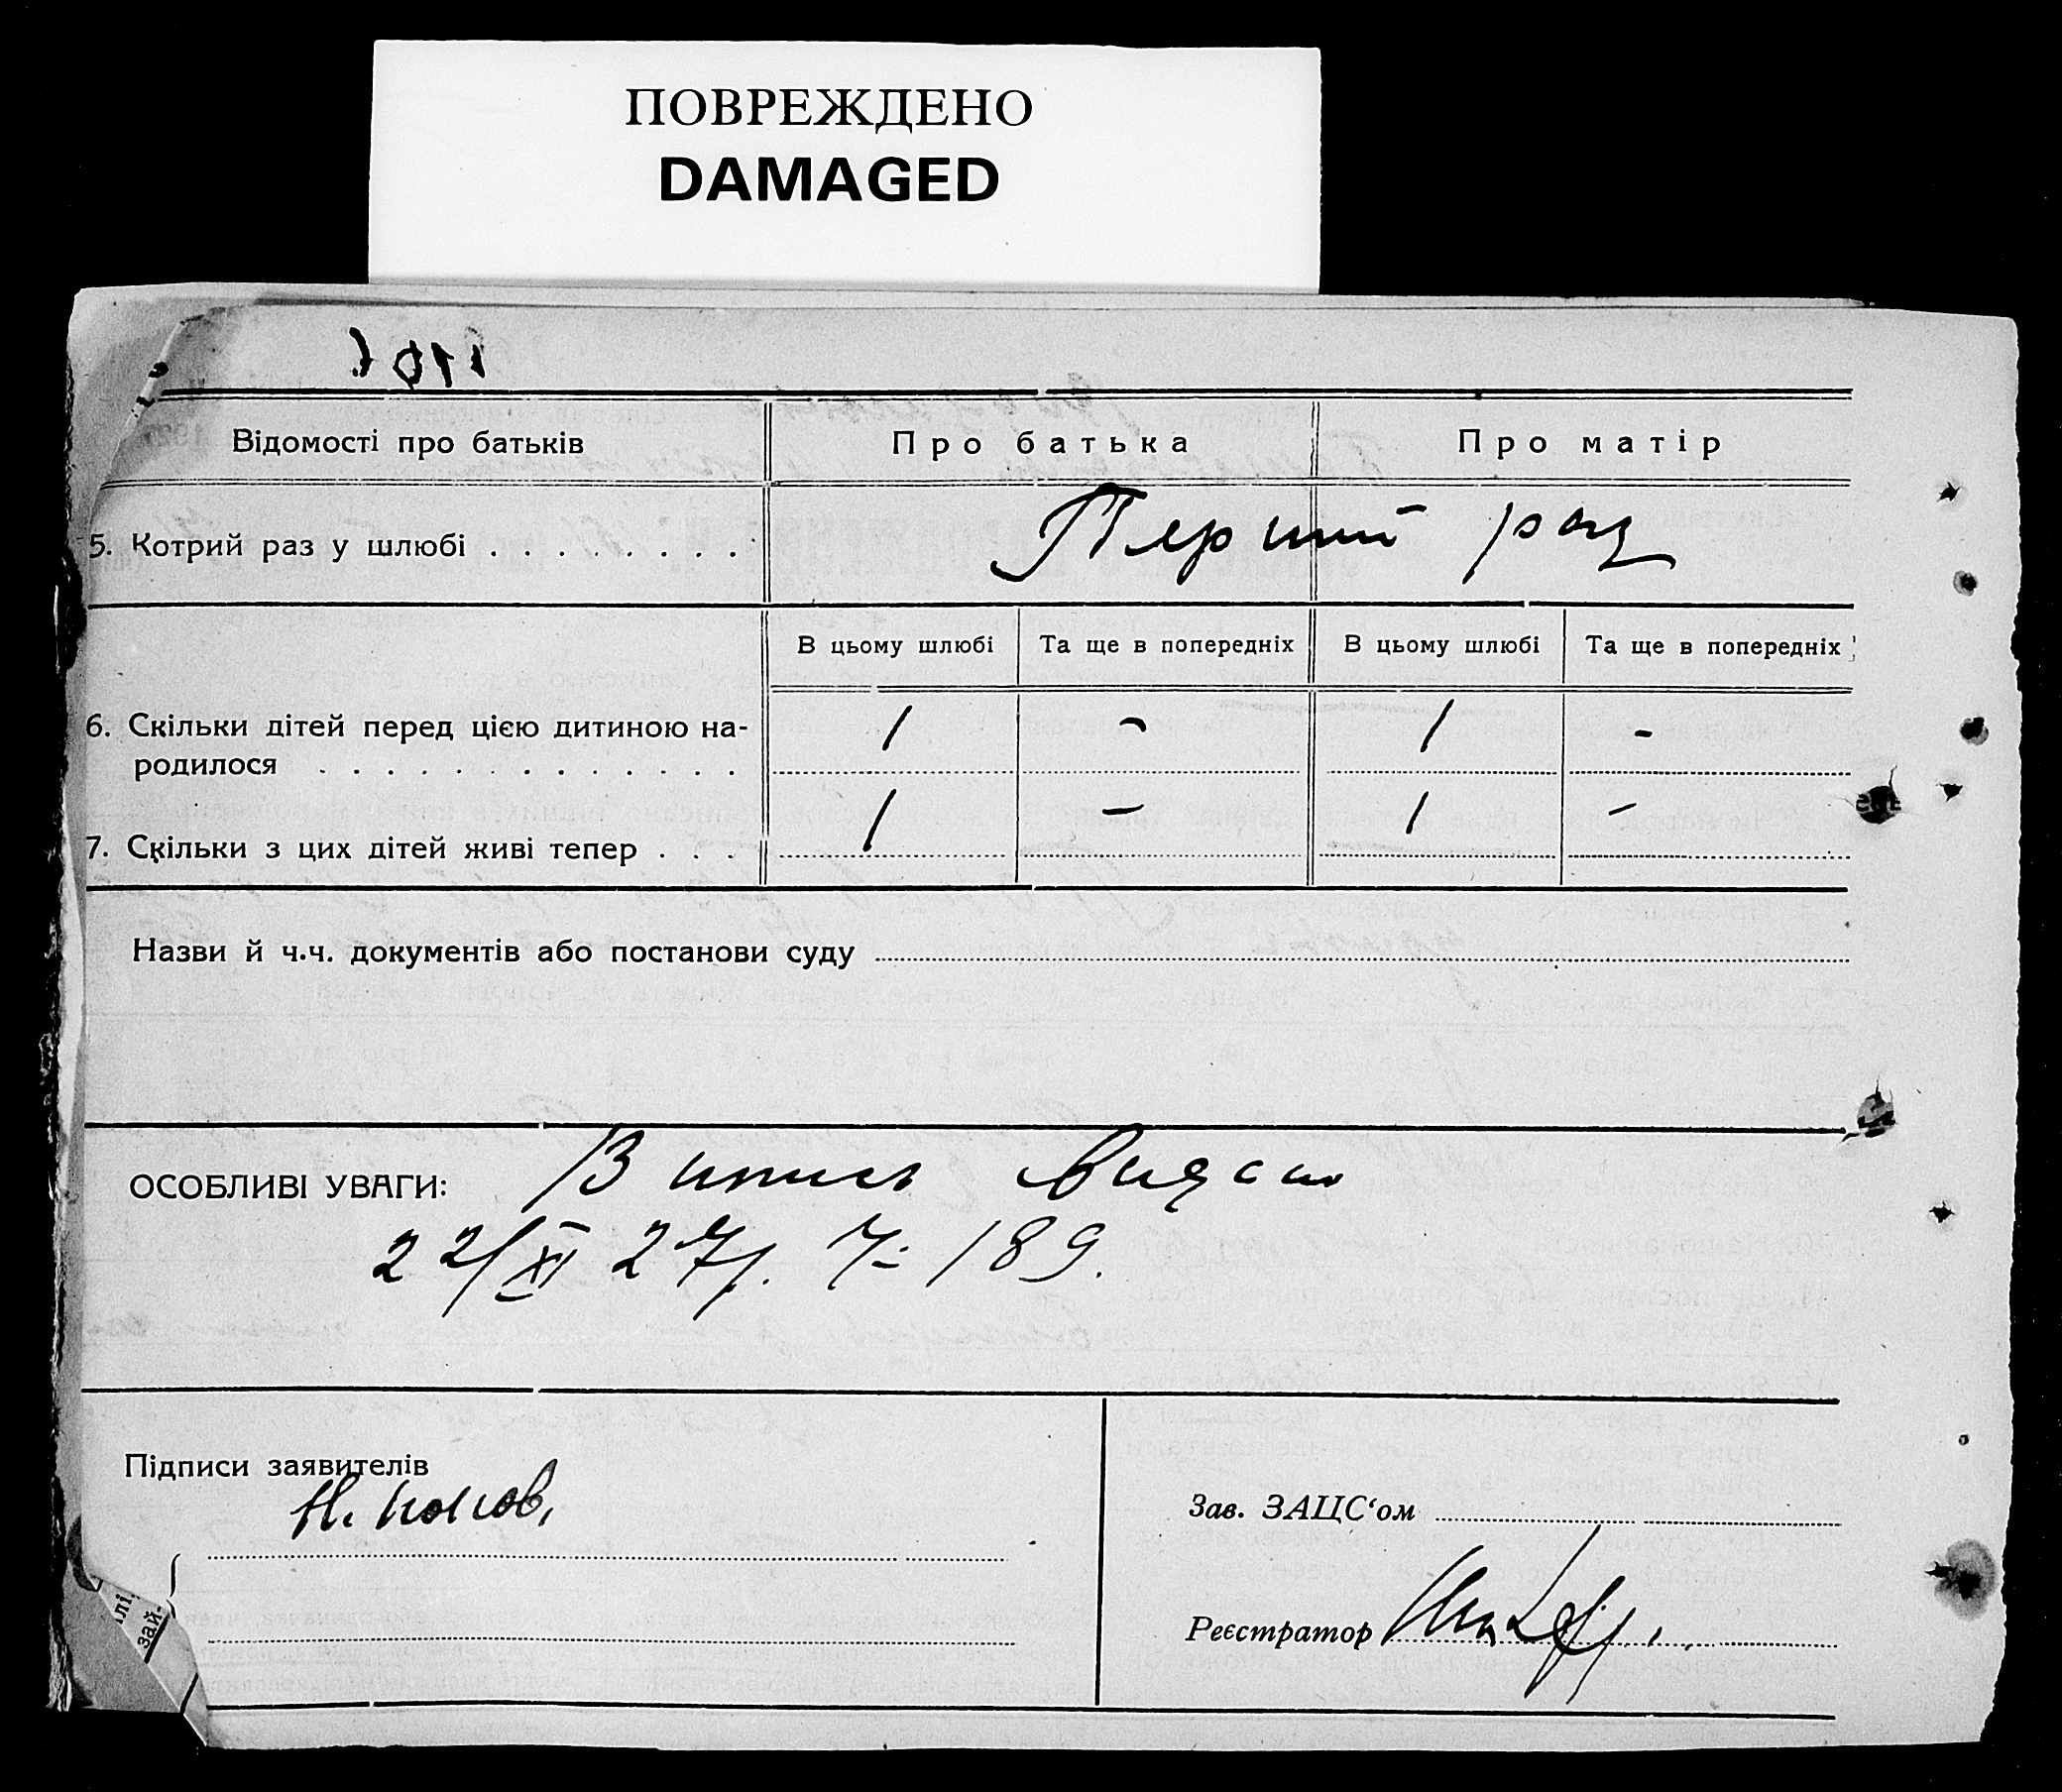 ПОВРЕЖДЕНО
DAMAGED
Відомості про батьків
Про батька
Про матір
5. Котрий раз у шлюбі . . . . . . . .
Перший раз
В цьому шлюбі
Та ще в попередніх
В цьому шлюбі
Та ще в попередніх
6. Скільки дітей перед цією дитиною на-
родилося . . . . . . . . . . . . .
1 - 1 -
7. Скільки з цих дітей живі тепер . . .
1 - 1 -
Назви й ч.ч. документів або постанови суду
ОСОБЛИВІ УВАГИ:
Випись видано
22/XI 27р. Ч- 189.
Підписи заявителів
Зав. ЗАЦС‘ом
Реєстратор
лі,
зай-